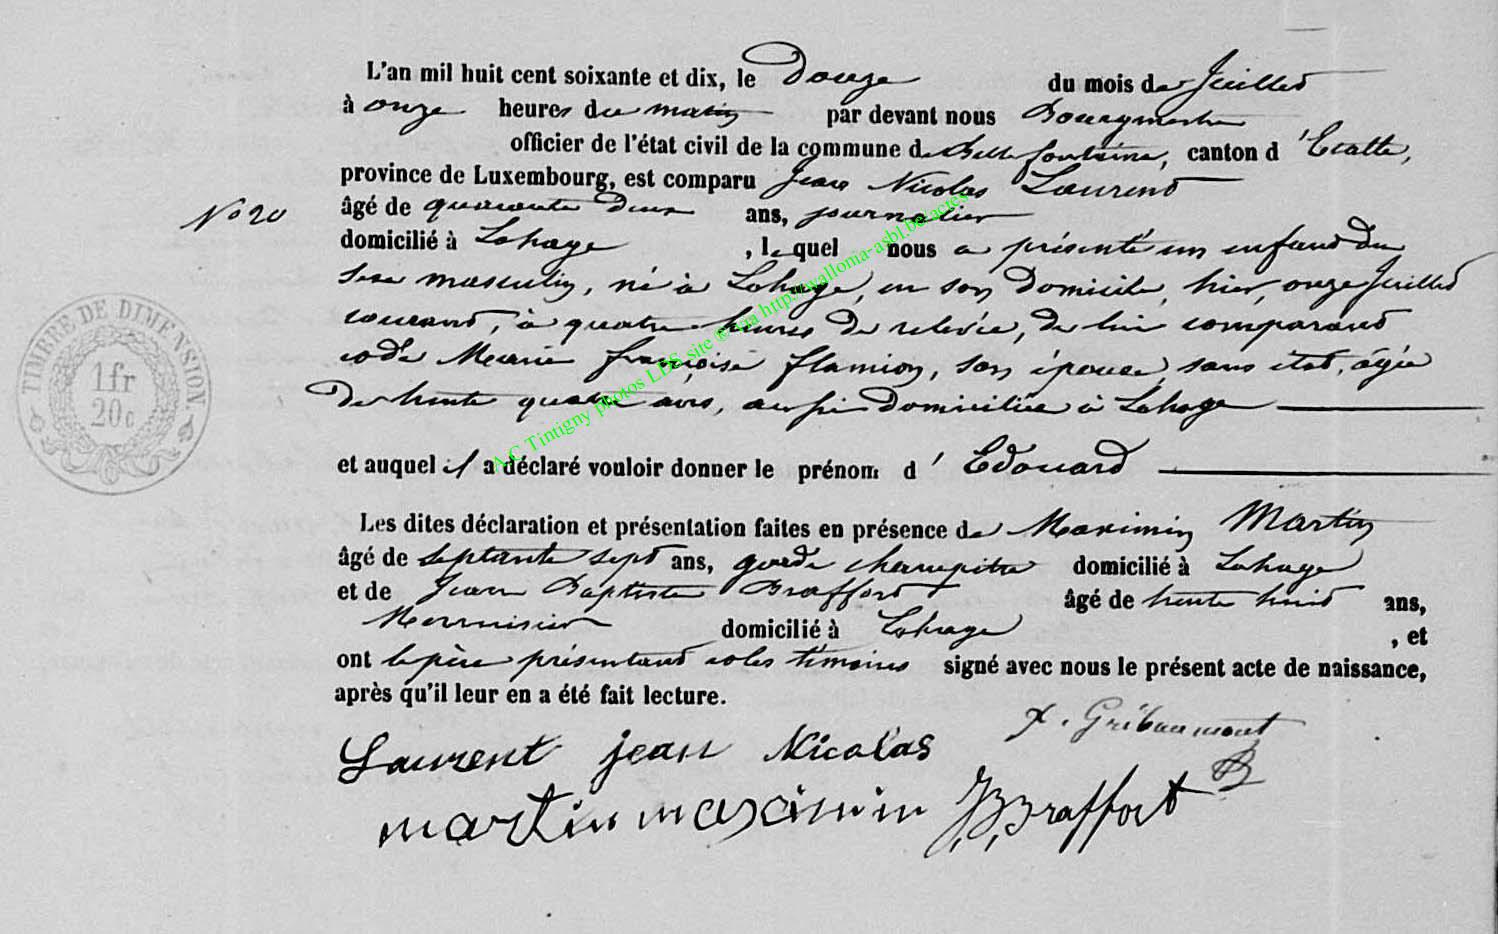 L'an mil huit cent soixante et dix, le Douze du mois de Juillet
à onze heures du matin par devant nous Bourgmestre
officier de l'état civil de la commune de Bellefontaine, canton d'Etalle,
province de Luxembourg, est comparu Jean Nicolas Laurent
N° 20
âgé de quarante deux ans, journalier
domicilié à Lahage, lequel nous a présenté un enfant du
sexe masculin, né à Lahage, en son domicile, hier, onze Juillet
courant, à quatre heures de relevée, de lui comparant
et de Marie françoise flamion, son épouse, sans état, âgée
de trente quatre ans, aussi domiciliée à Lahage
et auquel il a déclaré vouloir donner le prénom d'Edouard
Les dites déclaration et présentation faites en présence de Maximin Martin
âgé de septante sept ans, garde champêtre domicilié à Lahage
et de Jean Baptiste Braffort âgé de trente huit ans,
Menuisier domicilié à Lahage, et
ont le père présentant et les témoins signé avec nous le présent acte de naissance,
après qu'il leur en a été fait lecture.
Laurent jean Nicolas
Gribaumont
martin maximin
J,B,Braffort
TIMBRE DE DIMENSION.
1 fr
20 c
A.C Tintigny photos LDS site ® via http://wallonia-asbl.be/actes